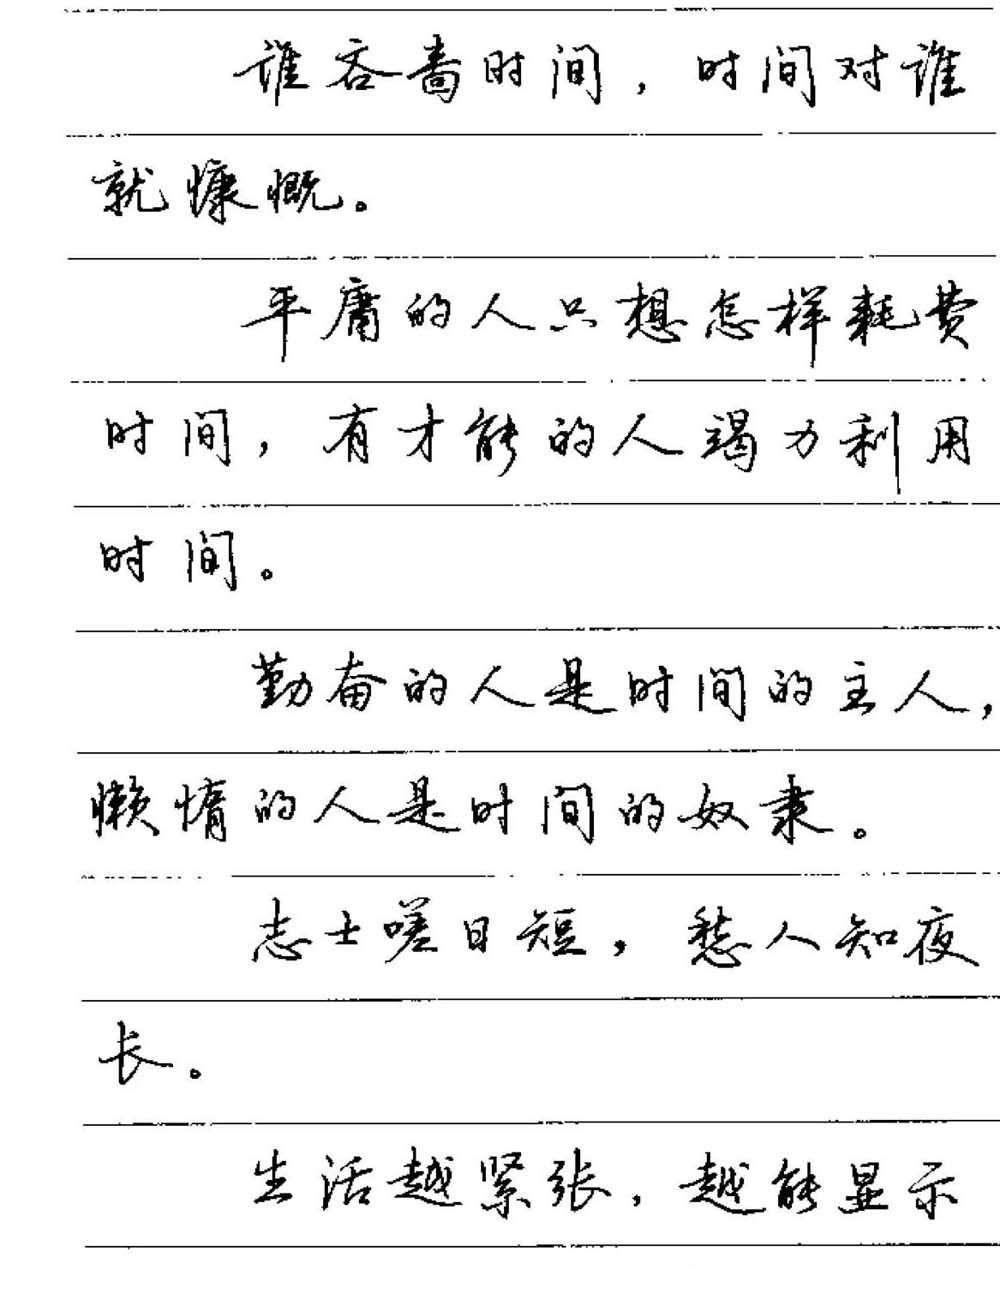 谁吝啬时间，时间对谁
就慷慨。
平庸的人只想怎样耗费
时间，有才能的人竭力利用
时间。
勤奋的人是时间的主人，
懒惰的人是时间的奴隶。
志士嗟日短，愁人知夜
长。
生活越紧张，越能显示